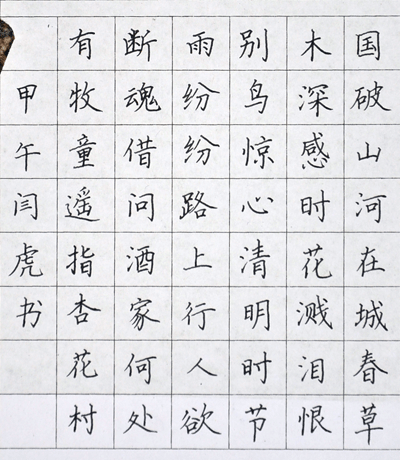 国破山河在城春草
木深感时花溅泪恨
别鸟惊心清明时节
雨纷纷路上行人欲
断魂借问酒家何处
有牧童遥指杏花村
甲午闫虎书